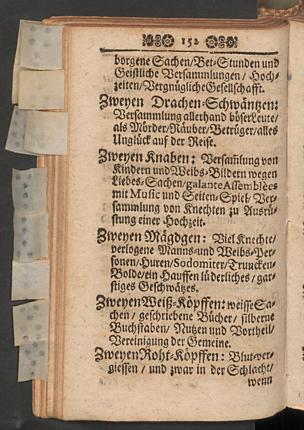 152
borgene Sachen/ Bet-Stunden und
Geistliche Versammlungen/ Hoch-
zeiten/ Vergnügliche Gesellschafft.
Zweyen Drachen-Schwäntzen:
Versammlung allerhand böser Leute/
als Mörder/ Räuber/ Betrüger/ alles
Unglück auf der Reise.
Zweyen Knaben: Versam̃lung von
Kindern und Weibs-Bildern wegen
Liebes-Sachen/ galante Assemblées
mit Music und Seiten-Spiel/ Ver-
sammlung von Knechten zu Ausrü-
stung einer Hochzeit.
Zweyen Mägdgen: Viel Knechte/
verlogene Manns- und Weibs-Per-
sonen/ Huren/ Sodomiter/ Truncken-
Bolde/ ein Hauffen lüderliches/ gar-
stiges Geschwätzes.
Zweyen Weiß-Köpffen: weisse Sa-
chen/ geschriebene Bücher/ silberne
Buchstaben/ Nutzen und Vortheil/
Vereinigung der Gemeine.
Zweyen Roht-Köpffen: Blut-ver-
giessen/ und zwar in der Schlacht/
wenn